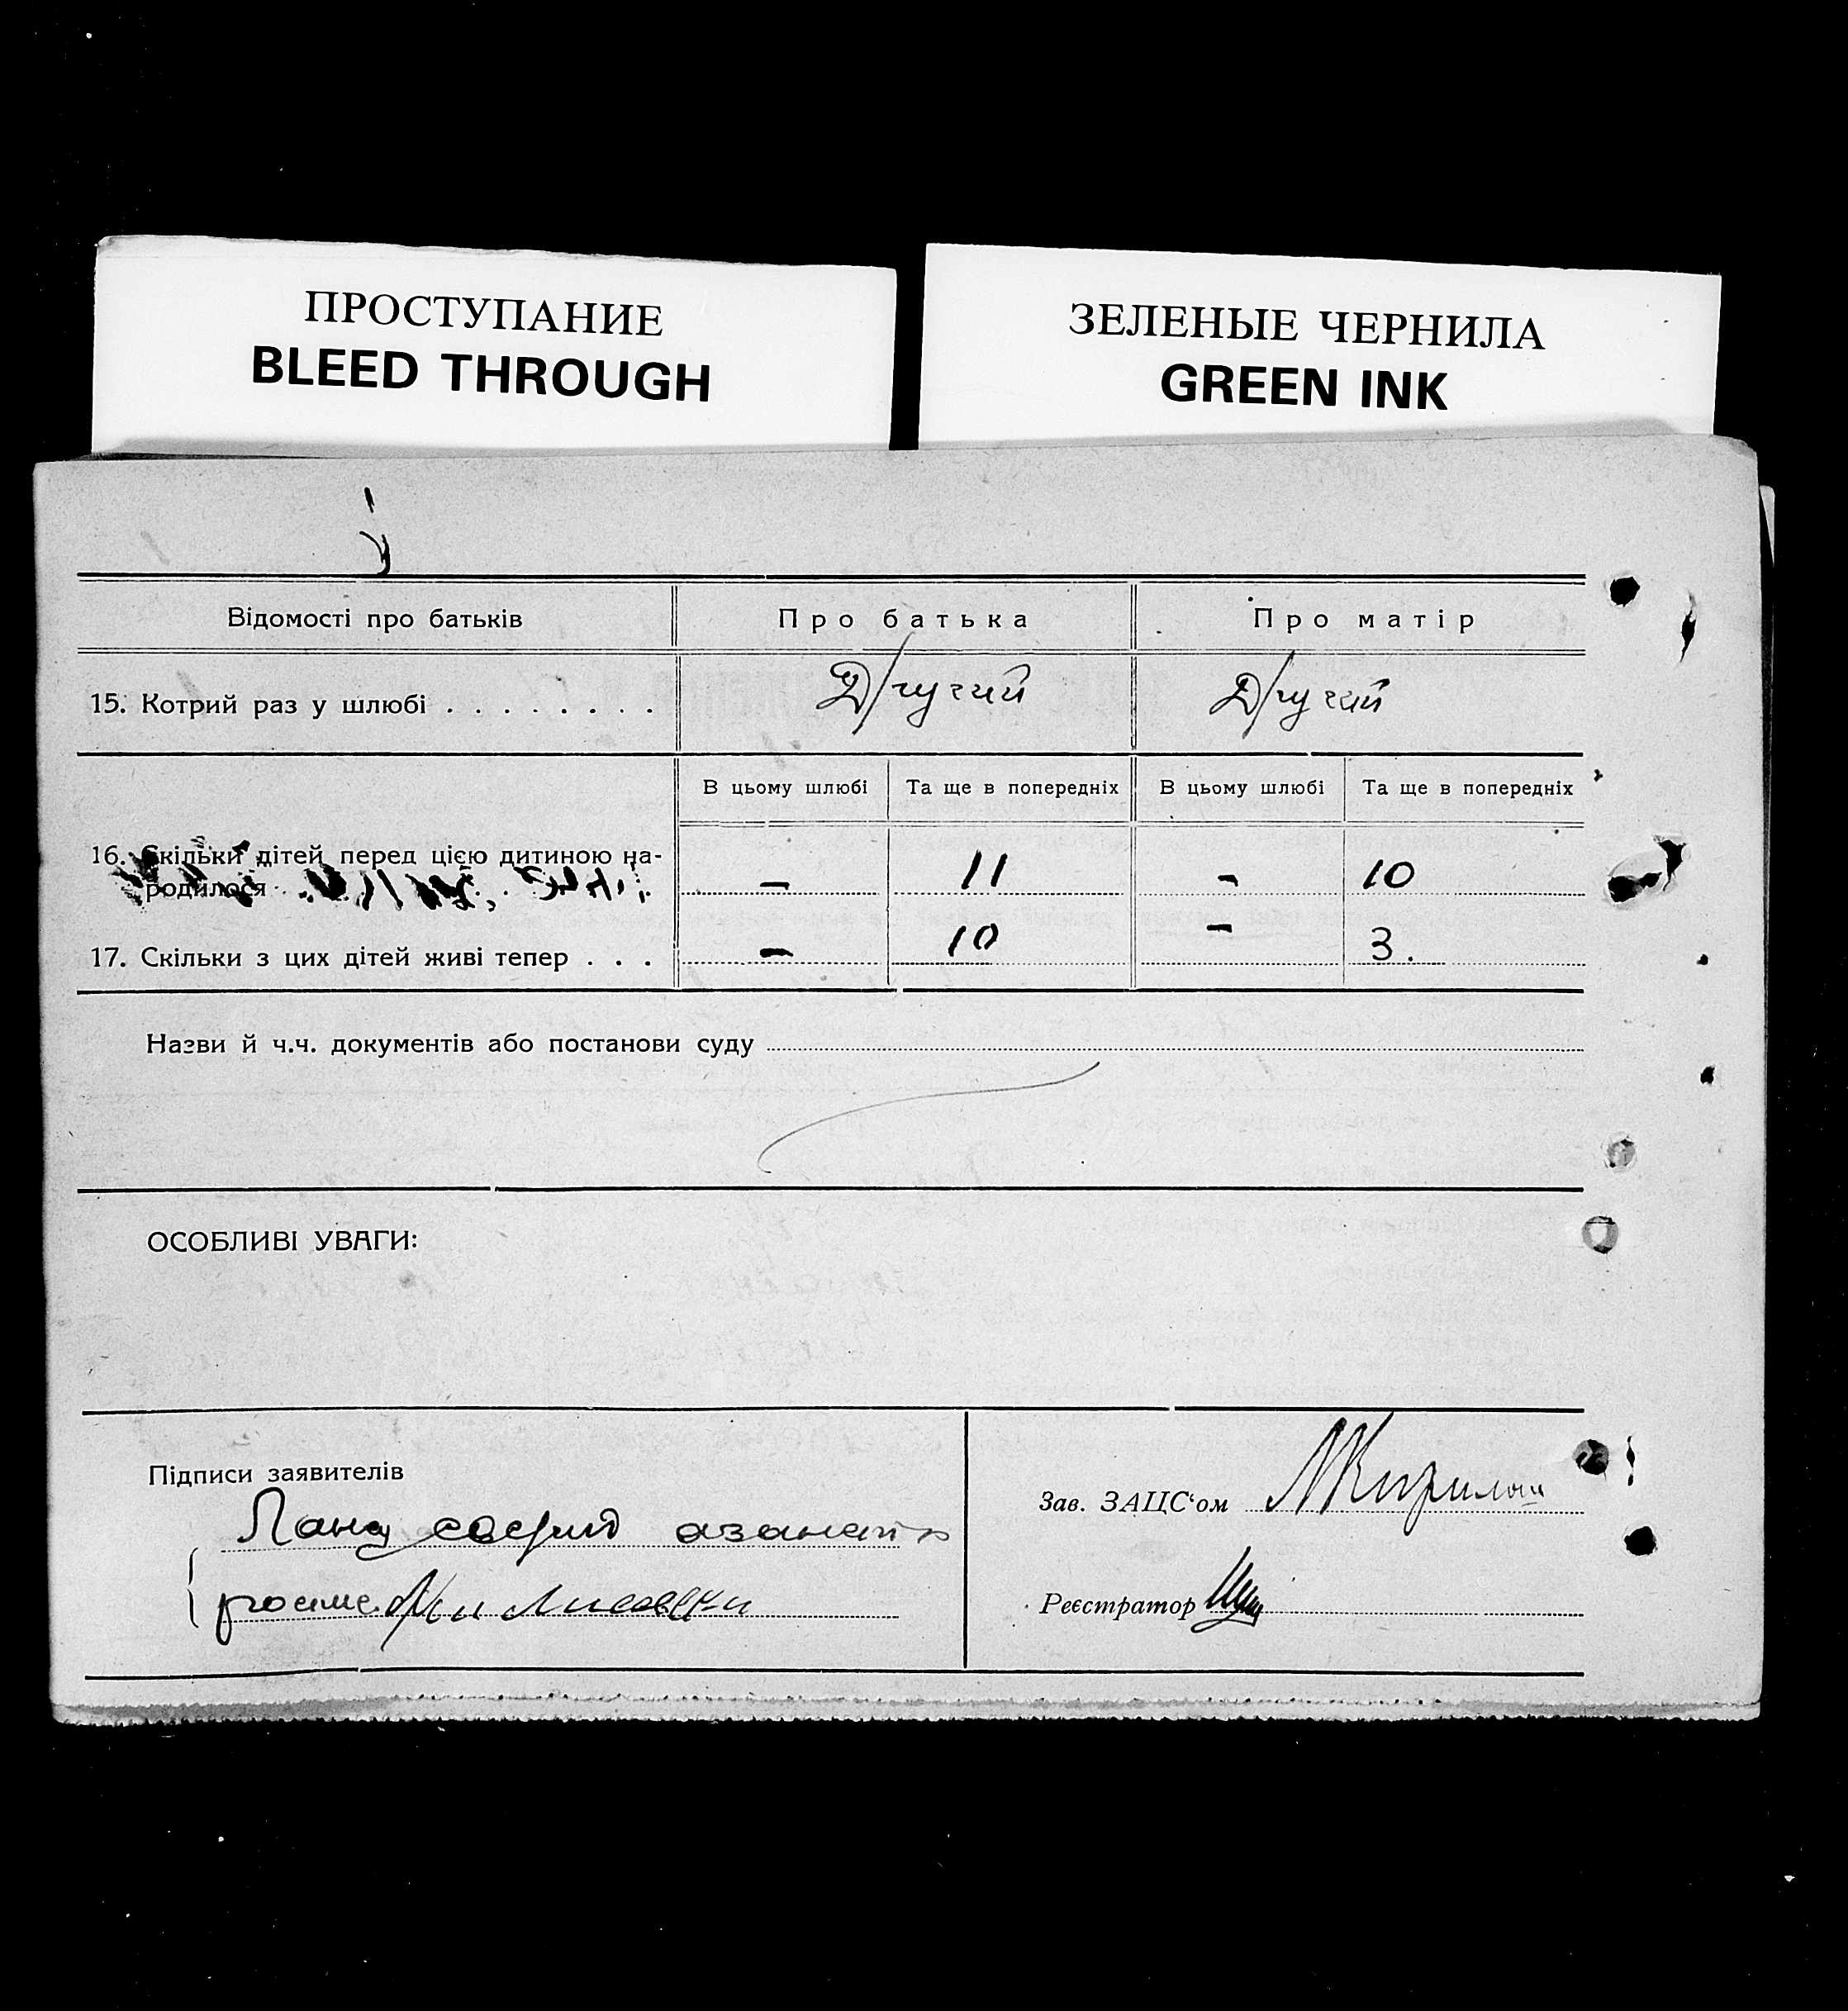 ПРОСТУПАНИЕ
BLEED THROUGH
ЗЕЛЕНЫЕ ЧЕРНИЛА
GREEN INK
Відомості про батьків Про батька Про матір
15. Котрий раз у шлюбі . . . . . . . . Другий Другий
В цьому шлюбі Та ще в попередніх В цьому шлюбі Та ще в попередніх
16. Скільки дітей перед цією дитиною на-
родилося – 11 – 10
17. Скільки з цих дітей живі тепер . . . – 10 – 3.
Назви й ч.ч. документів або постанови суду
ОСОБЛИВІ УВАГИ:
Підписи заявителів
Зав. ЗАЦС‘ом
Реєстратор